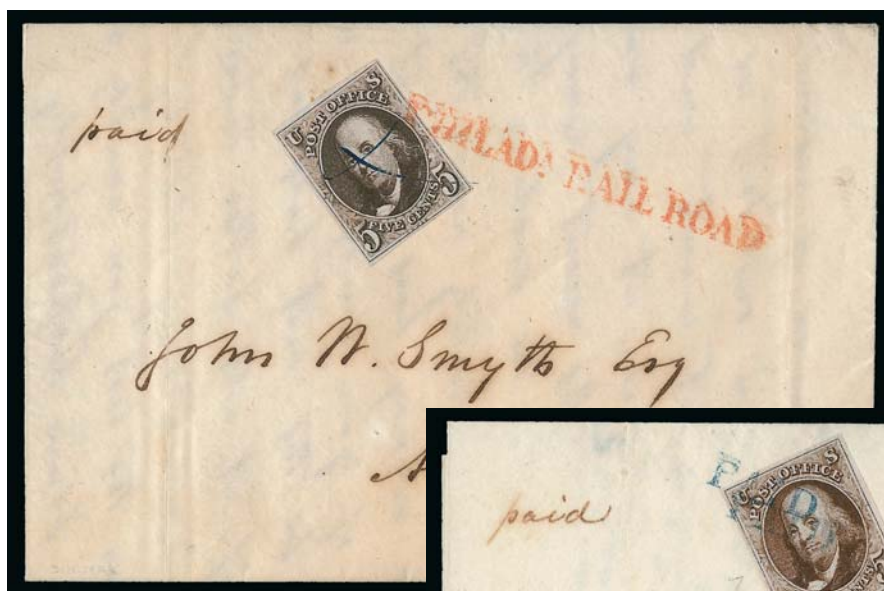 paid
U S
POST OFFICE
FIVE CENTS
5 5
PHILADA RAIL ROAD
John W. Smyth Esq
paid
PAID
U S
POST OFFICE
5